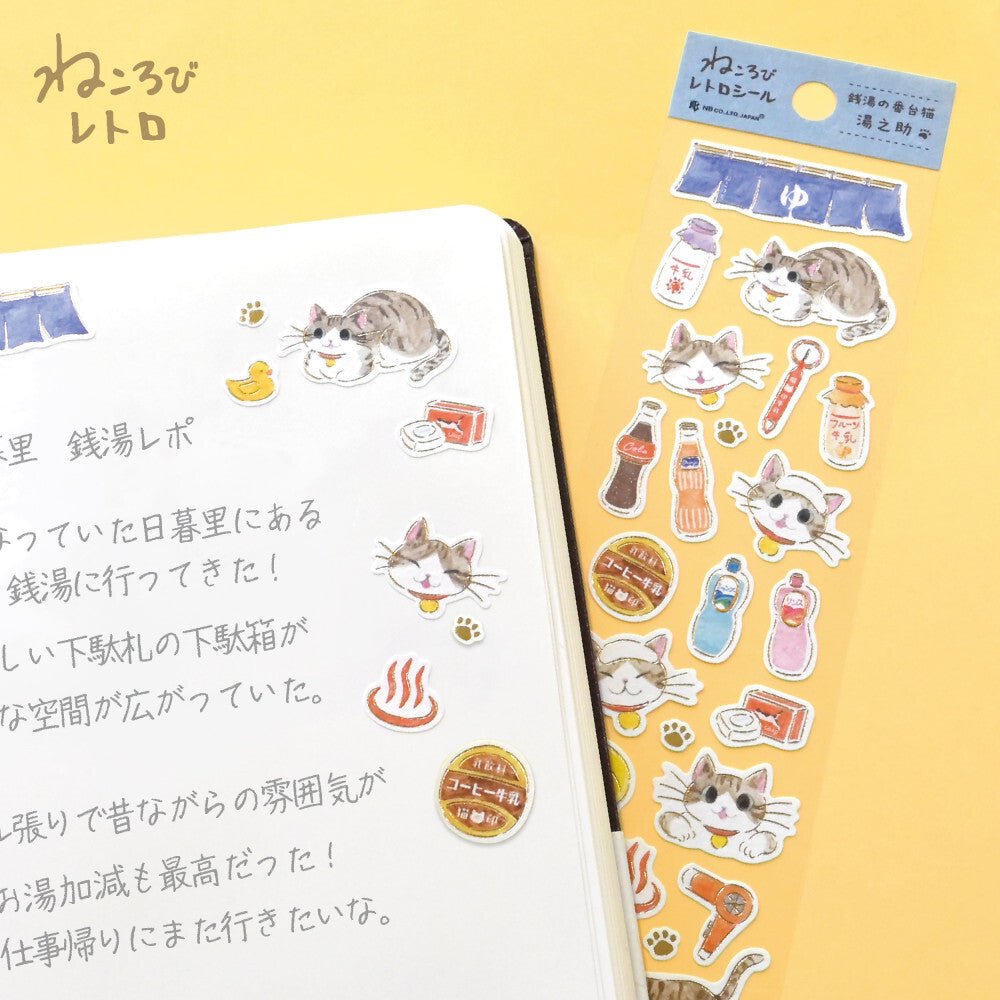 ねころび
レトロ
ねころび
レトロシール
NB CO.,LTD. JAPAN
銭湯の番台猫
湯之助
ゆ
牛乳
フルーツ
牛乳
Cola
コーヒー牛乳
猫 印
里 銭湯レポ
なっていた日暮里にある
銭湯に行ってきた！
しい下駄札の下駄箱が
な空間が広がっていた。
張りで昔ながらの雰囲気が
お湯加減も最高だった！
仕事帰りにまた行きたいな。
コーヒー牛乳
猫 印